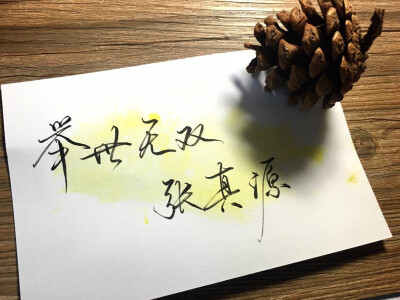 举世无双
张真源